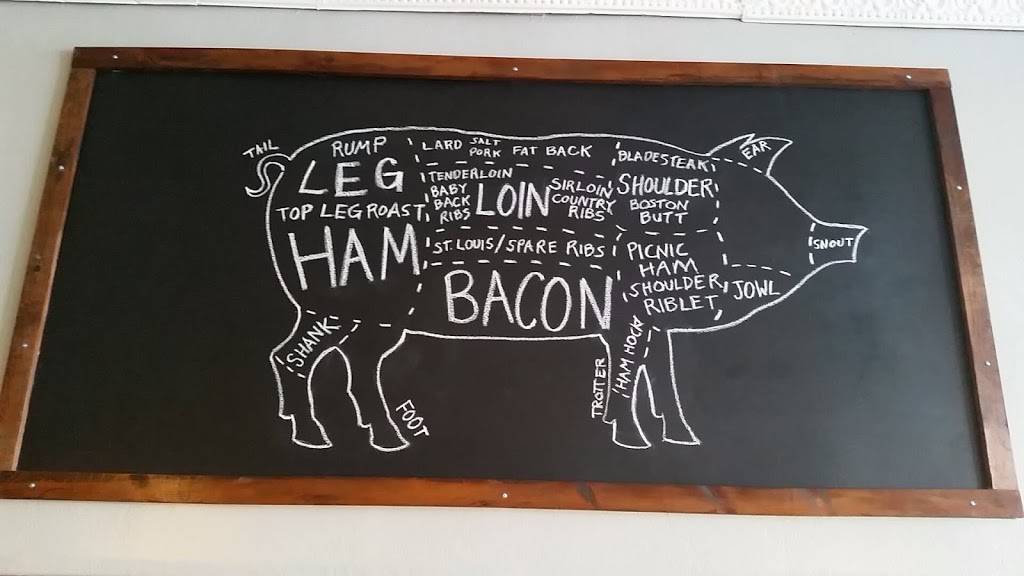 TAIL
RUMP
LEG
TOP LEG ROAST
HAM
SHANK
FOOT
LARD
SALT
PORK
FAT BACK
TENDERLOIN
BABY
BACK
RIBS
LOIN
SIRLOIN
COUNTRY
RIBS
ST. LOUIS/SPARE RIBS
BACON
BLADESTEAK
SHOULDER
BOSTON
BUTT
PICNIC
HAM
SHOULDER
RIBLET
TROTTER
HAM HOCK
EAR
SNOUT
JOWL